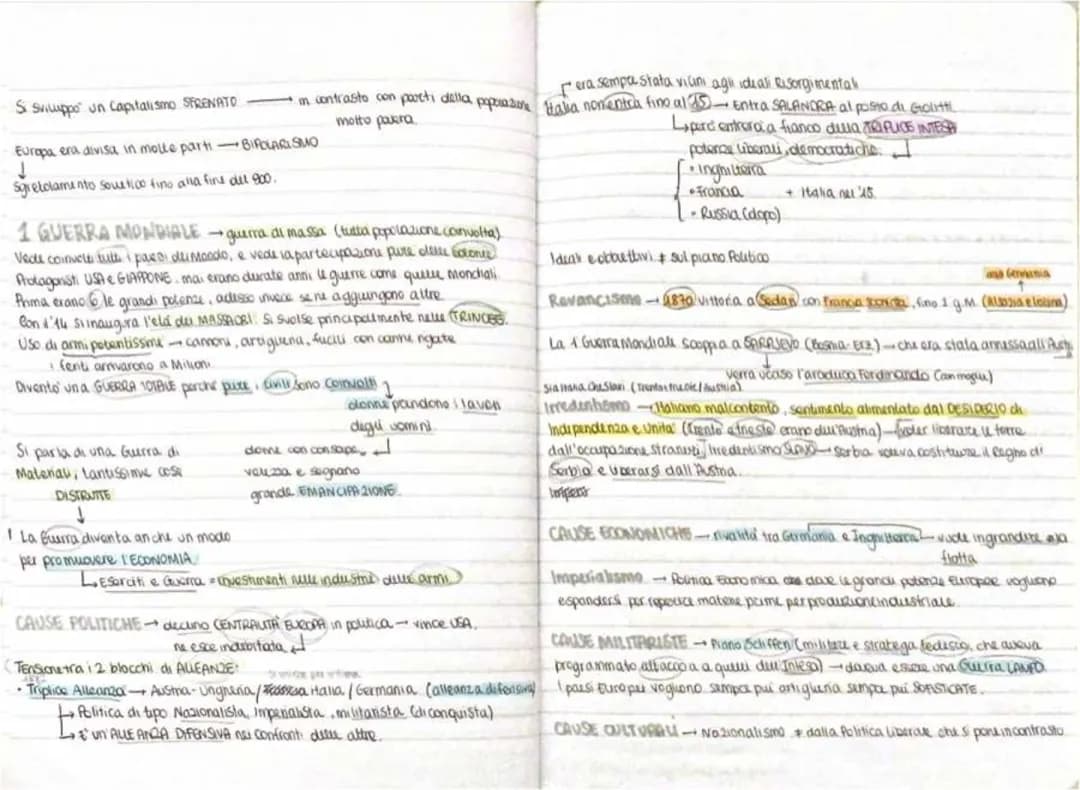 Si sviluppò un Capitalismo SFRENATO → in contrasto con parti della popolazione
molto povera.
Europa era divisa in molte parti → BIPOLARISMO
↓
Sgretolamento sovietico fino alla fine del 900.
1 GUERRA MONDIALE → guerra di massa (tutta popolazione coinvolta)
Vede coinvolti tutti i paesi del Mondo, e vede la partecipazione pure delle colonie
Protagonisti USA e GIAPPONE. mai erano durate anni le guerre come quelle Mondiali.
Prima erano 6 le grandi potenze, adesso invece se ne aggiungono altre.
Con l'14 si inaugura l'età dei MASSACRI. Si svolse principalmente nelle TRINCEE.
Uso di armi potentissime → cannoni, artiglieria, fucili con canne rigate
i feriti arrivarono a Milioni.
Diventò una GUERRA TOTALE perché pure i civili sono coinvolti
donne prendono i lavori
degli uomini.
Si parla di una Guerra di donne con consape
Materiali, tantissime cose volezza e segnano
DISTRUTTE grande EMANCIPAZIONE.
↓
! La Guerra diventa anche un modo
per promuovere l'ECONOMIA
↳ Eserciti e Guerra = investimenti nelle industrie delle armi
CAUSE POLITICHE → declino CENTRALITÀ EUROPA in politica → vince USA.
ne esce indebitata
(Tensione tra i 2 blocchi di ALLEANZE:
• Triplice Alleanza → Austria-Ungheria / Italia / Germania (alleanza difensiva)
↳ Politica di tipo Nazionalista, Imperialista, militarista (di conquista)
↳ È un'ALLEANZA DIFENSIVA nei confronti delle altre.
era sempre stata vicini agli ideali Risorgimentali
Italia non entra fino al 15 → Entra SALANDRA al posto di Giolitti
↳ però entrerà a fianco della TRIPLICE INTESA
potenze liberali, democratiche.
• Inghilterra
• Francia + Italia nel '15.
• Russia (dopo)
Ideali e obbiettivi ≠ sul piano Politico
alla Germania
Revancismo → 1870 vittoria a Sedan con Francia sconfitta, fino 1 g.M. (Alsazia e lorena)
La 1 Guerra Mondiale scoppia a SARAJEVO (Bosnia-Erz.) → che era stata annessa all'Austr.
verrà ucciso l'arciduca Ferdinando (con moglie)
Sia Italia che Slavi (Trento trieste / Austria)
Irredentismo → Italiano malcontento, sentimento alimentato dal DESIDERIO di
Indipendenza e Unità (Trento e trieste erano dell'Austria) → voler liberare le terre
dall'occupazione straniera, irredentismo SLAVO → Serbia voleva costituire il Regno di
Serbia e liberarsi dall'Austria.
Impero
CAUSE ECONOMICHE → rivalità tra Germania e Inghilterra → vuole ingrandire la
flotta
Imperialismo → Politica Economica dove le grandi potenze Europee vogliono
espandersi per reperire materie prime per produzione industriale.
CAUSE MILITARISTE → Piano Schliffen (militare e stratega tedesco, che aveva
programmato attacco a quelli dell'Intesa) → doveva essere una Guerra LAMPO
I paesi Europei vogliono sempre più artiglieria sempre più SOFISTICATE.
CAUSE CULTURALI → Nazionalismo ≠ dalla Politica Liberale che si pone in contrasto